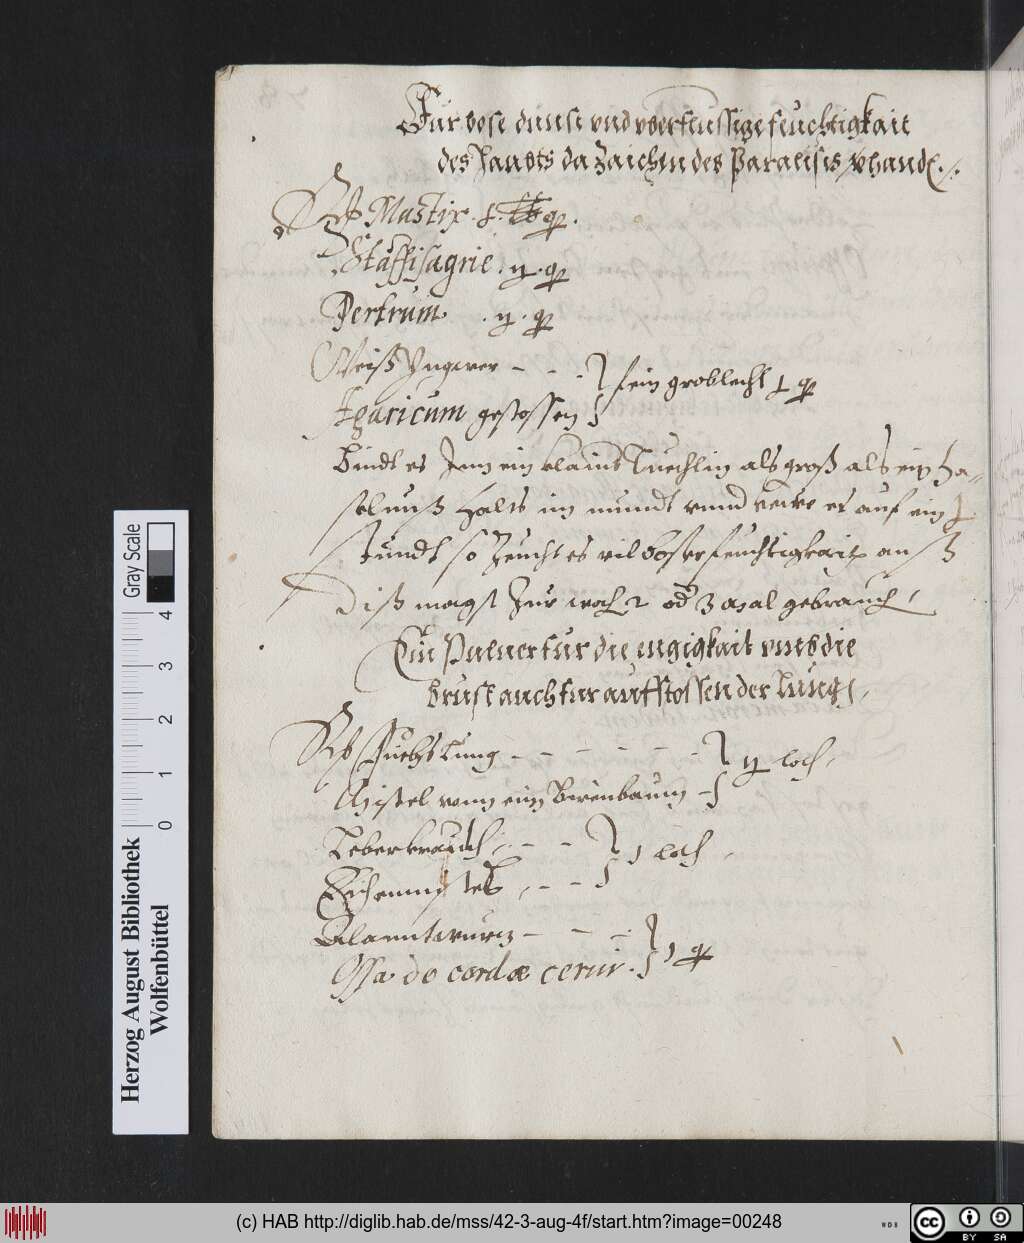 Für böse dünst vnd vberflüssige feüchtigkait
des Haubts da Zaichen des Paralisis vhandẽ ./.
Rp Mastix
Staffisagrie . ij . q
Pertrum . ij . q
Weiß Yngwer - - - } fein groblecht
Agaricum gestossen
bindt es Inn ein klains Tuechlin als groß als ein ha-
selnuß halts im mundt vnnd keüe es auf ein
stundt so Zeucht es vil böser feuchtigkait auß
Diß magst Zur woch 2 od 3 mal gebrauch
Ein Puluer für die engigkait vmb die
brust auch für aufstossen der Lung
Rp Fuchs Lung - - - - - - } ij loth
Mistel vonn eim Birenbaum -
Leberkrauth - - - } j loth
Eichenmistel - - -
Alanntwurtz - - - } j q
Ossa de cordæ cerui .
Gray Scale
0 1 2 3 4
Herzog August Bibliothek
Wolfenbüttel
(c) HAB http://diglib.hab.de/mss/42-3-aug-4f/start.htm?image=00248
WDB
cc BY SA